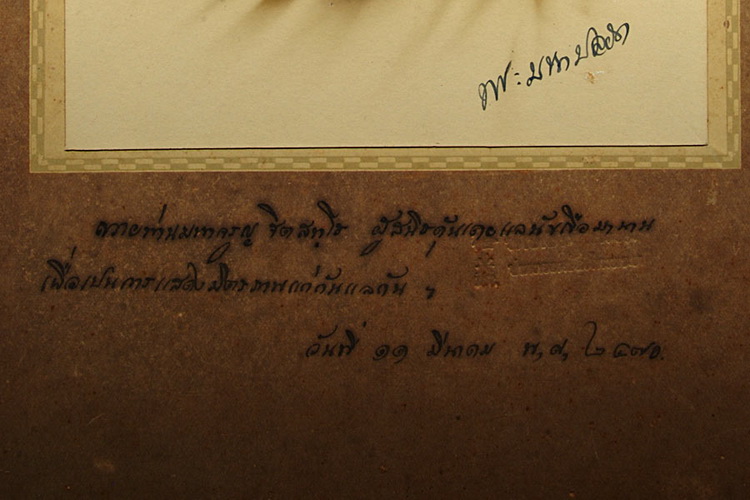 พระมหาปลอด
ถวายท่านมหาจรูญ ชิตสทฺโธ ผู้สนิธคุ้นเคยแลนับถือมานาน
เพื่อเปนการแสดงมิตรภาพแก่กันแลกัน ฯ
วันที่ ๑๑ มีนาคม พ,ศ, ๒๔๗๐.